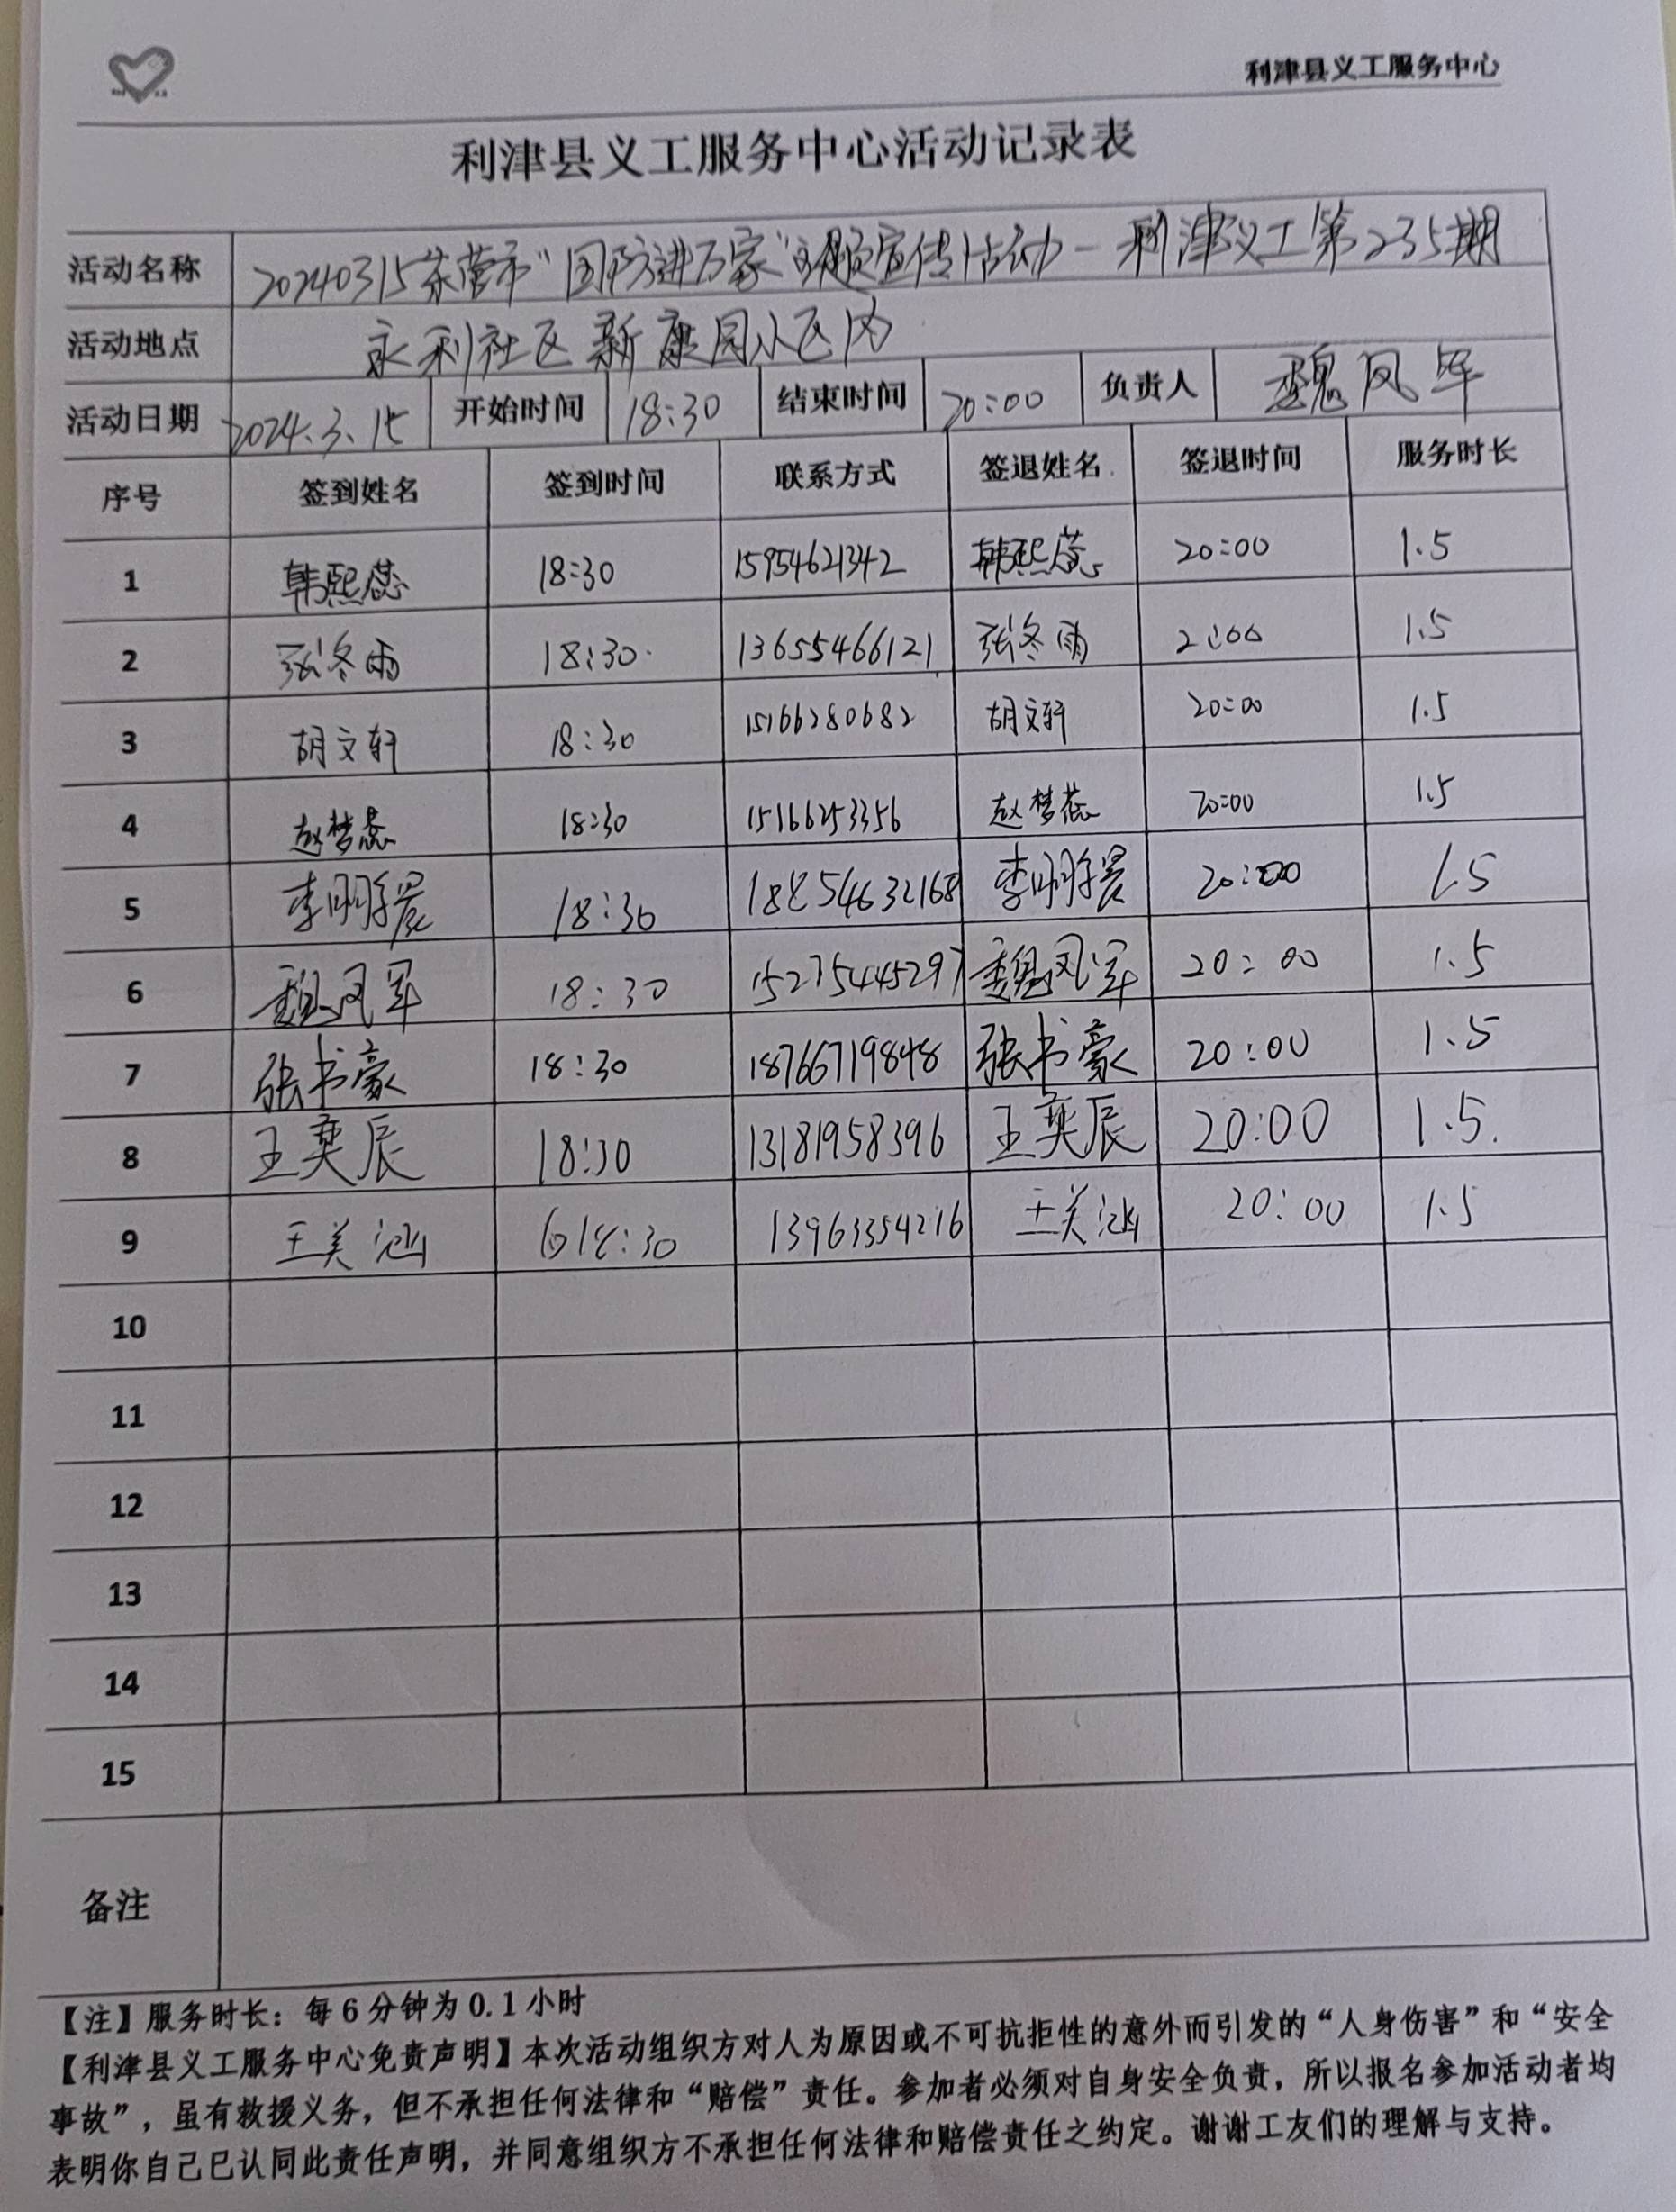 利津县义工服务中心
利津县义工服务中心活动记录表
活动名称 20240315东营市“国防进万家”主题宣传活动-利津义工第235期
活动地点 永利社区新康园小区内
活动日期 2024.3.15 开始时间 18:30 结束时间 20:00 负责人 魏凤军
序号 签到姓名 签到时间 联系方式 签退姓名 签退时间 服务时长
1 韩熙蕊 18:30 15954621342 韩熙蕊 20:00 1.5
2 张冬雨 18:30 13655466121 张冬雨 2:00 1.5
3 胡文轩 18:30 15166280682 胡文轩 20:00 1.5
4 赵梦蕊 18:30 15166253356 赵梦蕊 20:00 1.5
5 李明 18:30 20:00 1.5
6 魏凤军 18:30 15275445297 魏凤军 20:00 1.5
7 张书豪 18:30 18766719848 张书豪 20:00 1.5
8 王奕辰 18:30 13181958396 王奕辰 20:00 1.5.
9 王美涵 18:30 13963354216 王美涵 20:00 1.5
10
11
12
13
14
15
备注
【注】服务时长：每6分钟为0.1小时
【利津县义工服务中心免责声明】本次活动组织方对人为原因或不可抗拒性的意外而引发的“人身伤害”和“安全
事故”，虽有救援义务，但不承担任何法律和“赔偿”责任。参加者必须对自身安全负责，所以报名参加活动者均
表明你自己已认同此责任声明，并同意组织方不承担任何法律和赔偿责任之约定。谢谢工友们的理解与支持。